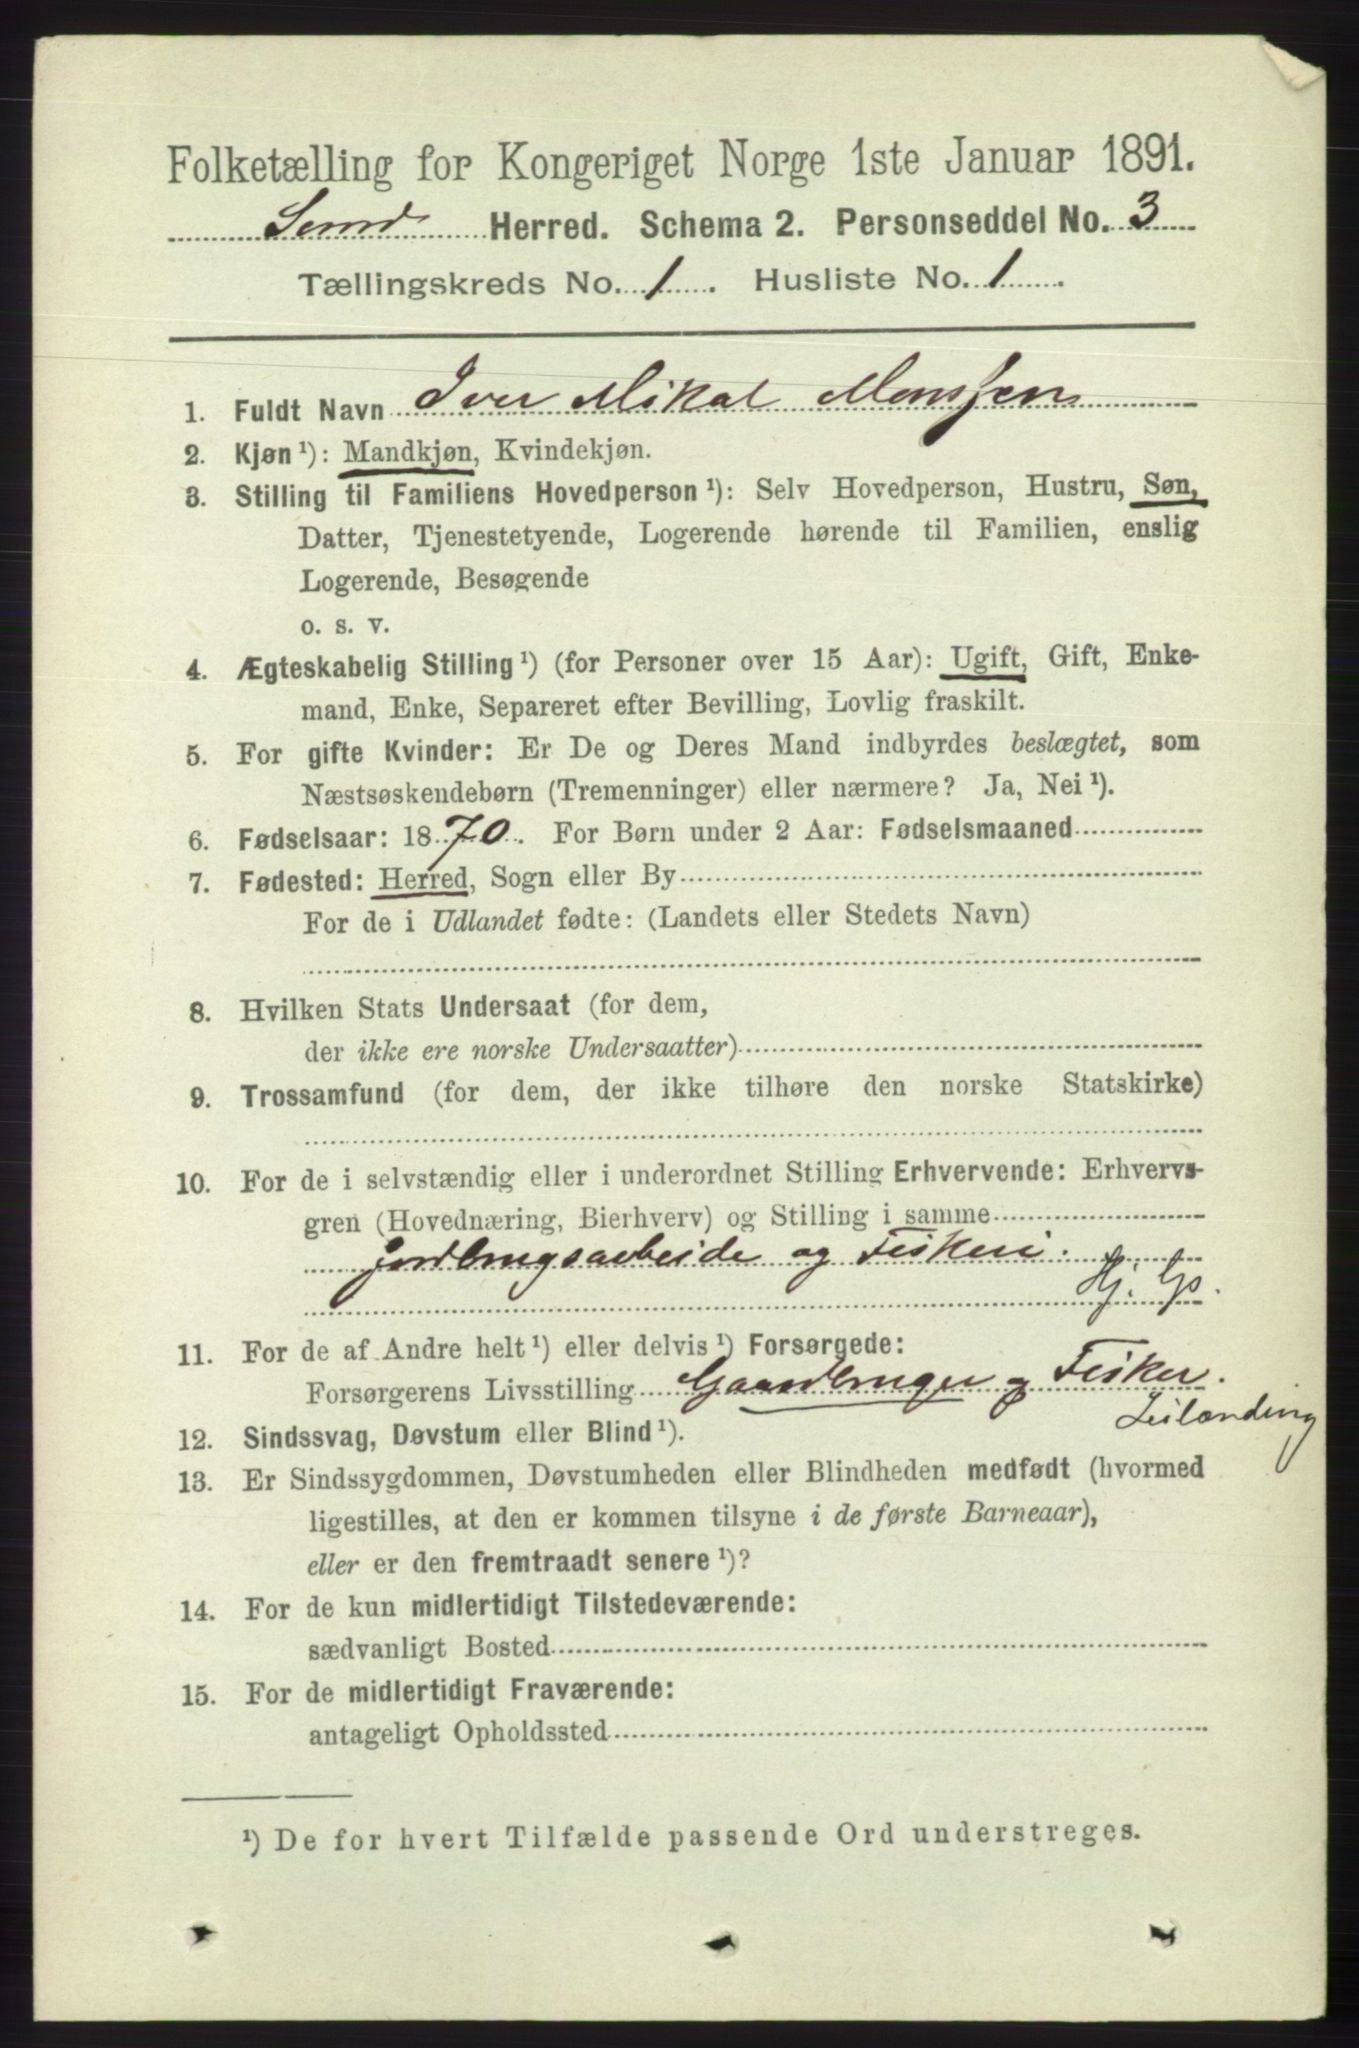 Folketælling for Kongeriget Norge 1ste Januar 1891.
Sund Herred. Schema 2. Personseddel No. 3
Tællingskreds No. 1. Husliste No. 1.
1. Fuldt Navn Iver Mikal Monssen
2. Kjøn ¹): Mandkjøn, Kvindekjøn.
3. Stilling til Familiens Hovedperson ¹): Selv Hovedperson, Hustru, Søn,
Datter, Tjenestetyende, Logerende hørende til Familien, enslig
Logerende, Besøgende
o. s. v.
4. Ægteskabelig Stilling ¹) (for Personer over 15 Aar): Ugift, Gift, Enke-
mand, Enke, Separeret efter Bevilling, Lovlig fraskilt.
5. For gifte Kvinder: Er De og Deres Mand indbyrdes beslægtet, som
Næstsøskendebørn (Tremenninger) eller nærmere? Ja, Nei ¹).
6. Fødselsaar: 1870. For Børn under 2 Aar: Fødselsmaaned
7. Fødested: Herred, Sogn eller By
For de i Udlandet fødte: (Landets eller Stedets Navn)
8. Hvilken Stats Undersaat (for dem,
der ikke ere norske Undersaatter)
9. Trossamfund (for dem, der ikke tilhøre den norske Statskirke)
10. For de i selvstændig eller i underordnet Stilling Erhvervende: Erhvervs-
gren (Hovednæring, Bierhverv) og Stilling i samme
jordbrugsarbeide og Fiskeri.
Hj. Gs.
11. For de af Andre helt ¹) eller delvis ¹) Forsørgede:
Forsørgerens Livsstilling Gaardbruger og Fisker.
Leilænding
12. Sindssvag, Døvstum eller Blind ¹).
13. Er Sindssygdommen, Døvstumheden eller Blindheden medfødt (hvormed
ligestilles, at den er kommen tilsyne i de første Barneaar),
eller er den fremtraadt senere ¹)?
14. For de kun midlertidigt Tilstedeværende:
sædvanligt Bosted
15. For de midlertidigt Fraværende:
antageligt Opholdssted
¹) De for hvert Tilfælde passende Ord understreges.